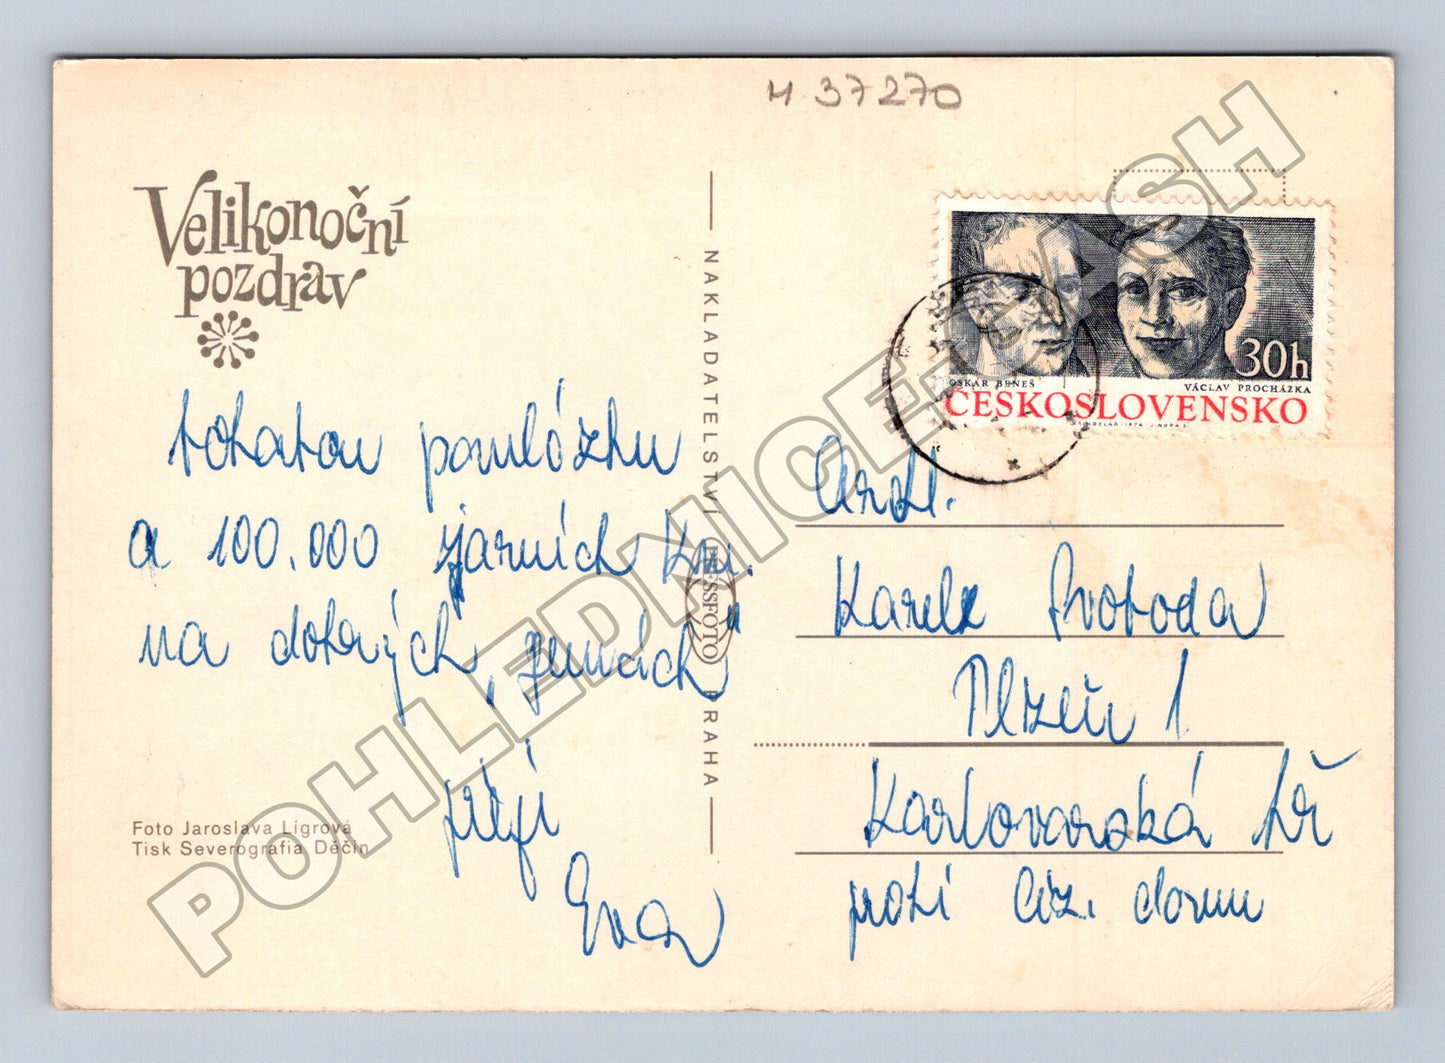 H 37270
Velikonoční
pozdrav
bohatou pomlázku
a 100.000 jarních Km.
na dobrých "gumách"
přeje
Eva
Foto Jaroslava Ligrová
Tisk Severografia Děčín
NAKLADATELSTVÍ PRESSFOTO PRAHA
30h
OSKAR BENEŠ
VÁCLAV PROCHÁZKA
ČESKOSLOVENSKO
Karel Svoboda
Plzeň 1
Karlovarská tř
proti ciz. domu
POHLEDNICE CASH